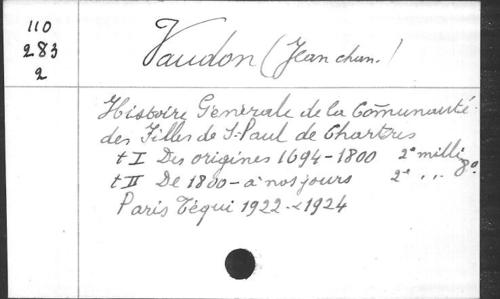 110
283
2
Vaudon (Jean chan.)
Histoire Generale de la Com̃unauté
des Filles de S. Paul de Chartres
t I Des origines 1694-1800 2e milli 8o.
t II De 1800 - à nos jours 2e ,,
Paris Téqui 1922-1924